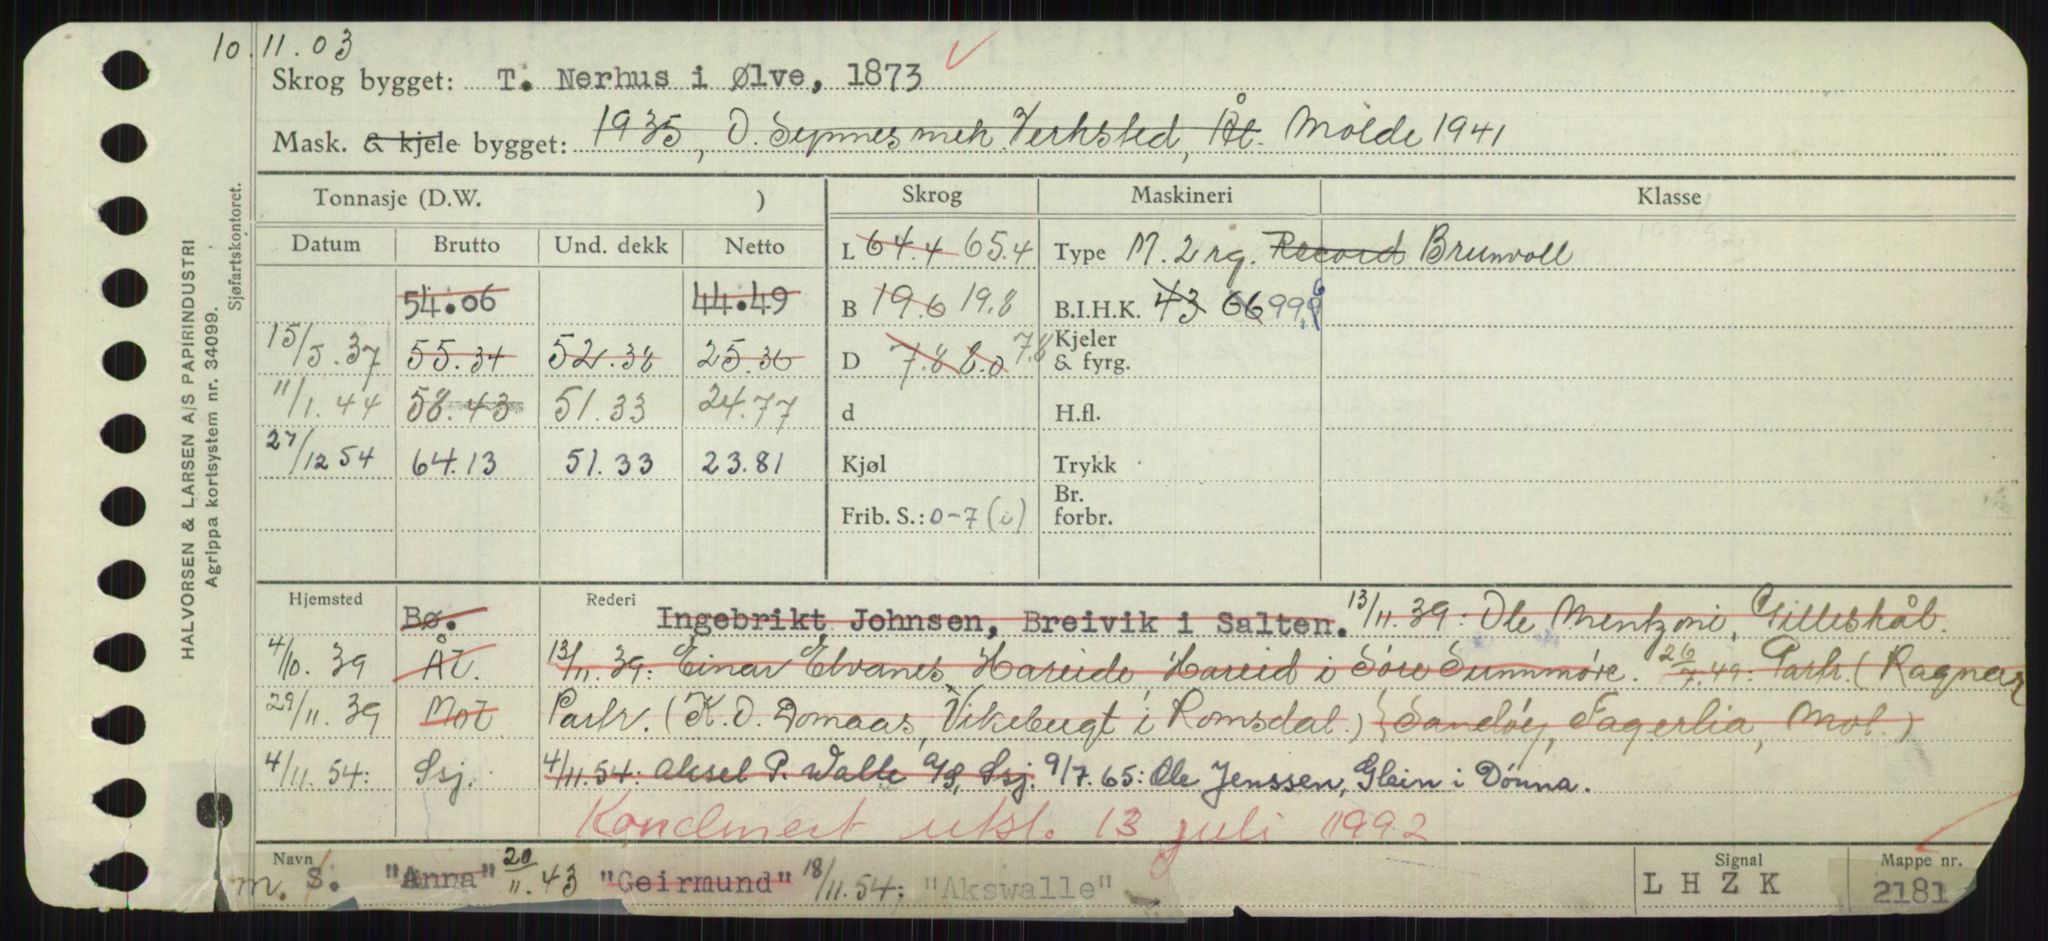 10.11.03
Skrog bygget: T. Nerhus i Ølve, 1873
Mask. & kjele bygget: 1935, O. Synnes mek. Verksted, Åt. Molde 1941
Tonnasje (D.W. ) Skrog Maskineri Klasse
Datum Brutto Und. dekk Netto
L 64.4 65.4 Type M. 2 rg. Record Brunvoll
54.06 44.49 B 19.6 19.8 B.I.H.K. 43 66 99,6
15/5.37 55.34 52.38 25.30 D 7.8 8.0 7.8 Kjeler & fyrg.
11/1.44 58.43 51.33 24.77 d H.fl.
27/12 54 64.13 51.33 23.81 Kjøl Trykk
Frib. S.: 0-7 (i) Br. forbr.
Hjemsted Bø. Rederi Ingebrikt Johnsen, Breivik i Salten. 13/11.39: Ole Mentzoni, Gilleskål.
4/10.39 Ål. 13/11.39: Einar Elvanes, Hareide Hareid i Søre Sunnmøre. 26/7.49: Partr. (Ragnar
29/11.39 Mol. Partr. (K. O. Domaas, Vikebugt i Romsdal.) Sandøy, Fagerlia, Mol.)
4/11.54: Ssj. 4/11.54: Aksel P. Walle A/S, Ssj. 9/7.65: Ole Jenssen, Glein i Dønna.
Kondemert utsl. 13 juli 1992
Navn m. S. "Anna" 20/11.43 "Geirmund" 18/11.54: "Akswalle" Signal LHZK Mappe nr. 2181
HALVORSEN & LARSEN A/S PAPIRINDUSTRI
Agrippa kortsystem nr. 34099.
Sjøfartskontoret.